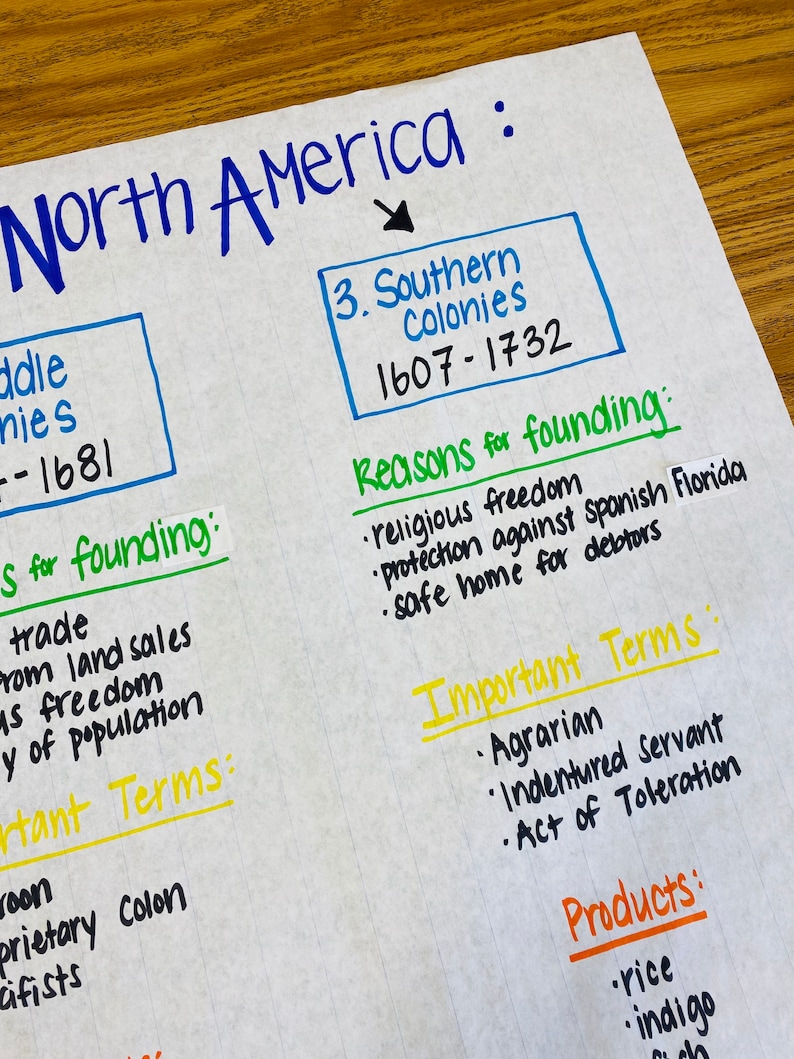 North America:
ddle
nies
-1681
s for founding:
trade
rom land sales
us freedom
y of population
rtant Terms:
roon
prietary Colon
ifists
3. Southern
Colonies
1607-1732
Reasons for founding:
·religious freedom
·protection against Spanish Florida
·safe home for debtors
Important Terms:
·Agrarian
·Indentured Servant
·Act of Toleration
Products:
·rice
·indigo